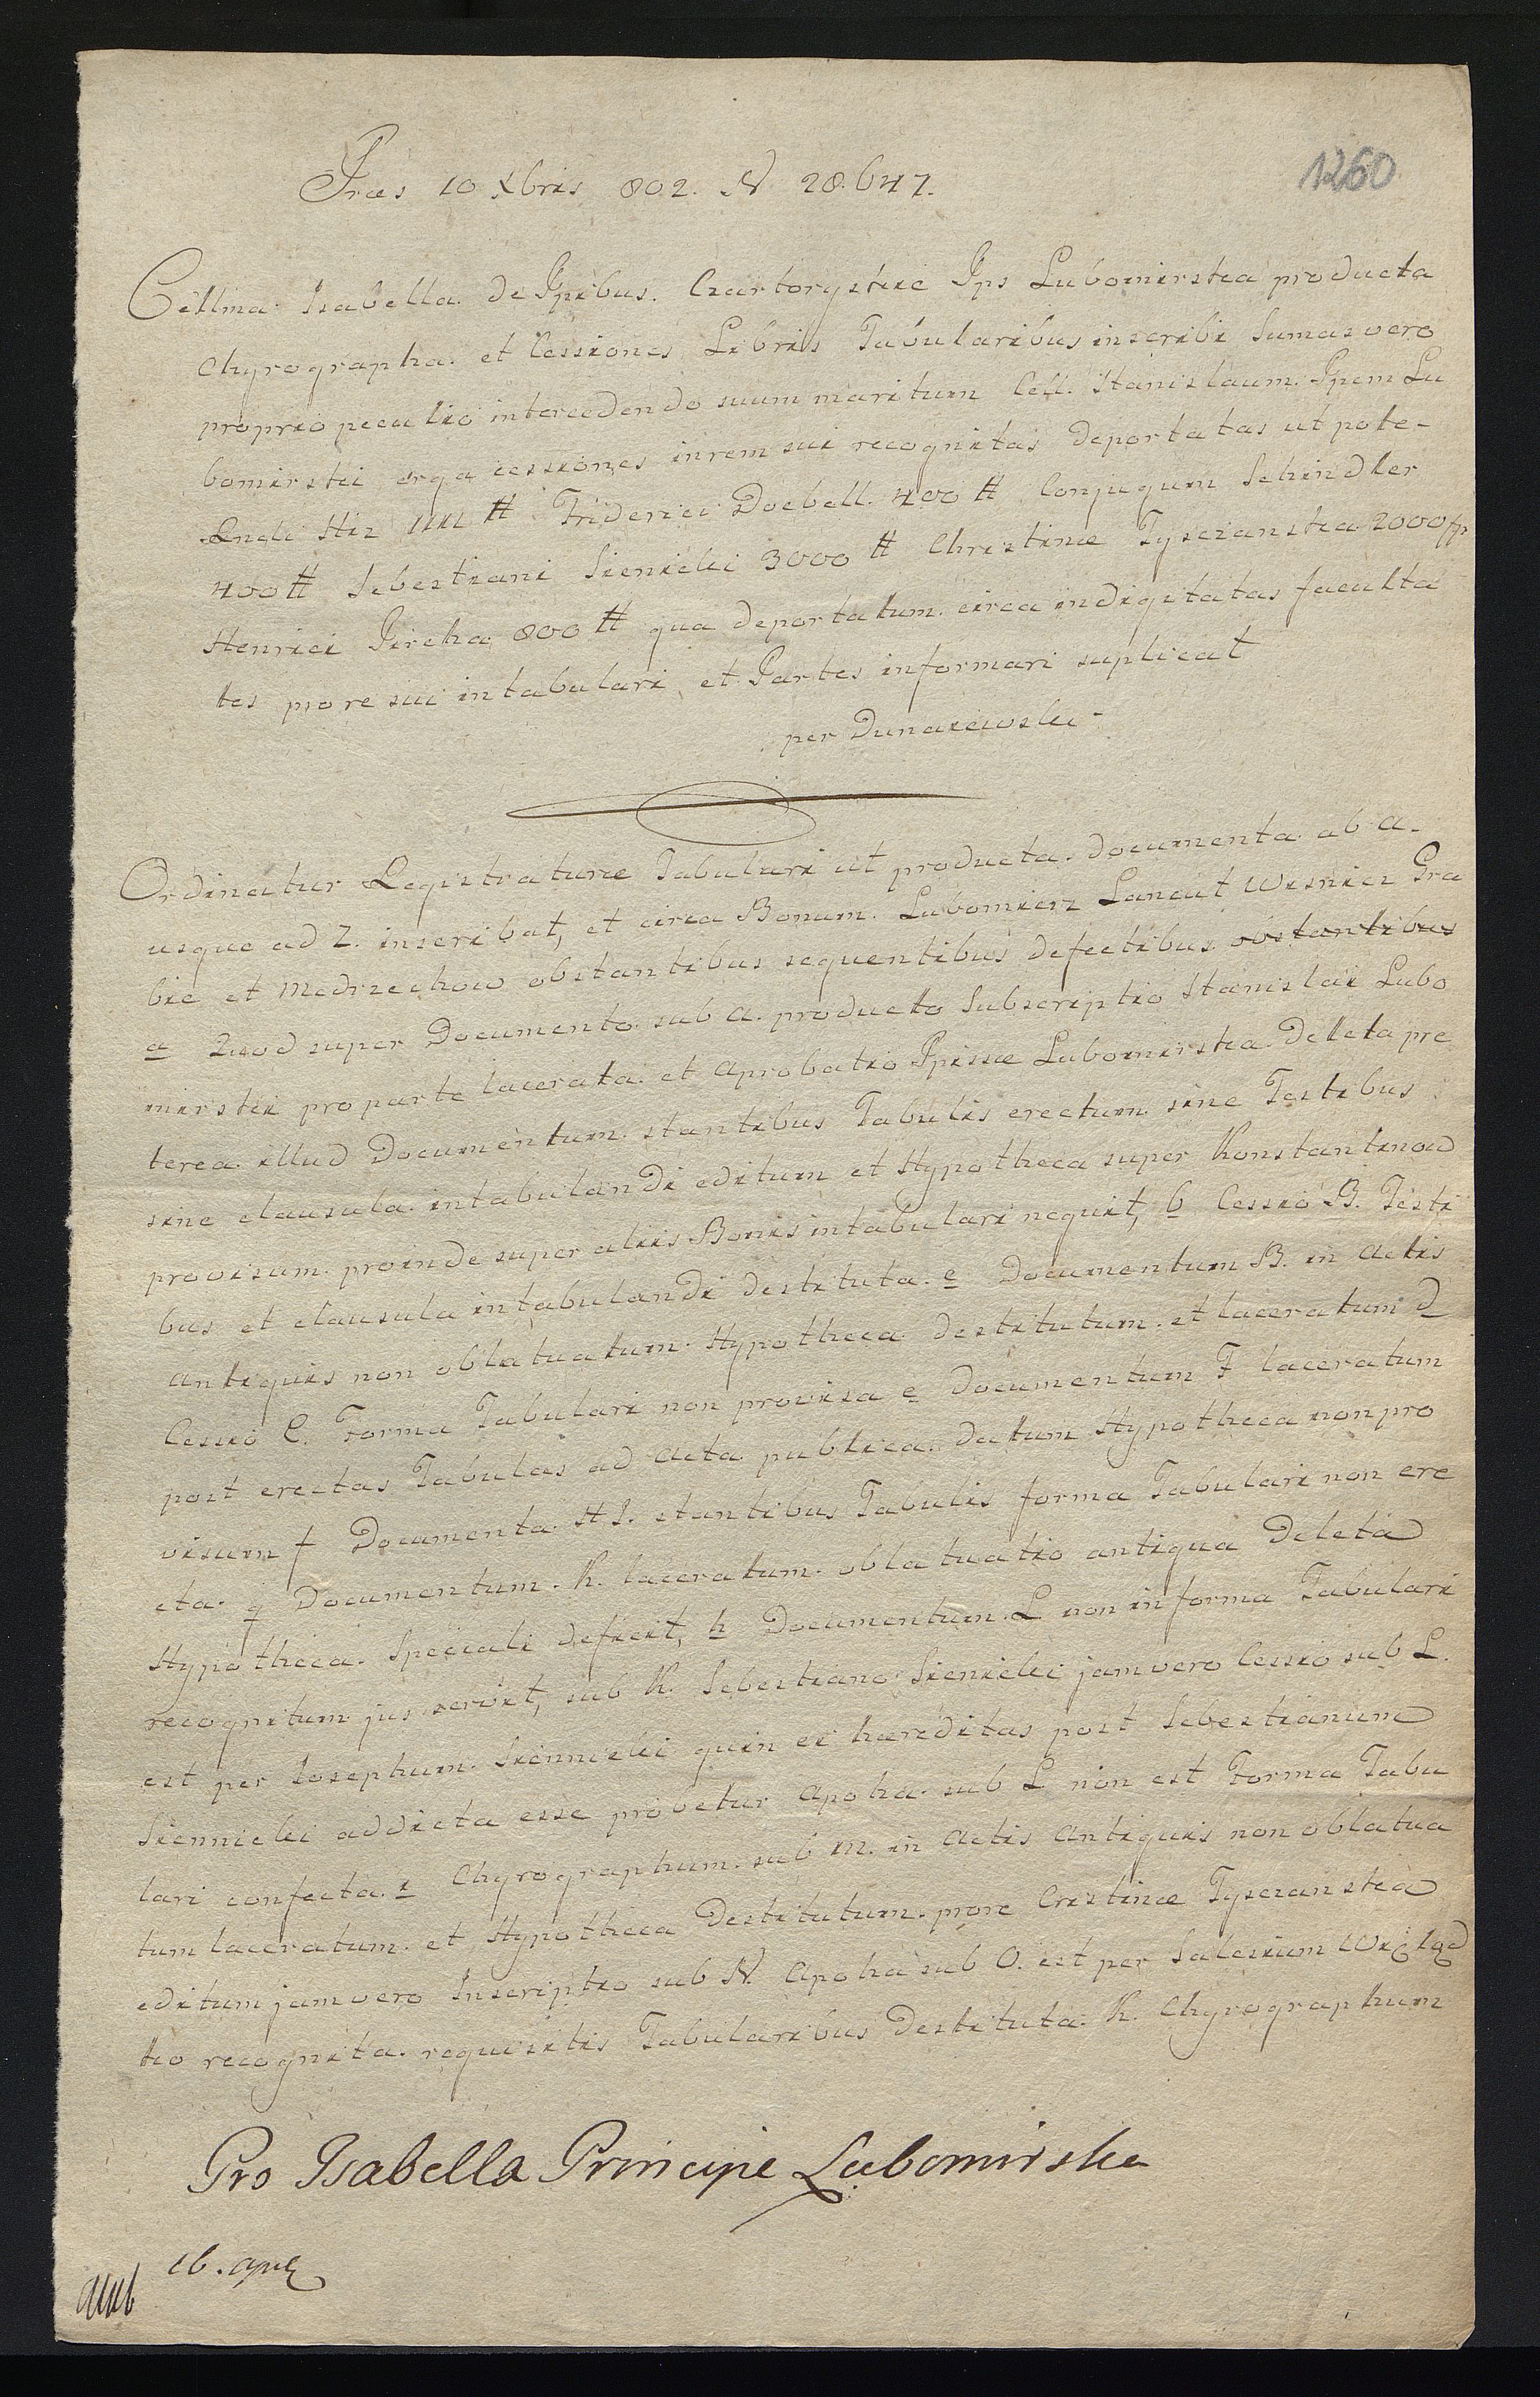 1260
Præs 10 Xbris 802. N 28.647.
Cellma Isabella de Ppibus. Czartoryskie Pps Lubomirska producta
Chyrographa et Cessiones Libris Tabularibus inscribi Sumas vero
proprio peculio intercedendo suum maritum Cell. Stanislaum Ppem Lu
bomirski erga cessiones in rem sui recognitas deportatas ut pote-
1111 # Friderici Doebell. 400 # Conjugum Schindler
400 # Sebestiani Sienicki 3000 # Christinæ Tyszanska 2000 fp
Henrici Pircha 800 # qua deportatum circa indigitatas faculta
tes pro re sui intabulari et Partes informari suplicat
per Dunaiewski-
Ordinatur Regestraturæ Tabulari ut producta documenta ab A.
usque ad Z. inscribat, et circa Bonum. Lubomierz Lancut Wisnicz Gra
bie et Medrzechow obstantibus sequentibus defectibus obstantibus
a Quod super Documento sub A. producto Subscriptio Stanislai Lubo
mirskii pro parte lacerata et Aprobatio Ppissæ Lubomirska deleta pre
terea illud Documentum stantibus Tabulis erectum sine Testibus
sine clausula intabulandi editum et Hypotheca super Konstantinow
provisum proinde super aliis Bonis intabulari nequit, b Cessio B. Testi
bus et clausula intabulandi destituta. c Documentum B. in Actis
antiquis non oblatuatum Hypotheca destitutum et laceratum d
Cessio C. Forma Tabulari non provisa e Documentum F laceratum
post erectas Tabulas ad Acta publica datum Hypotheca non pro
visum f Documenta H I. stantibus Tabulis forma Tabulari non ere
cta. g Documentum K. laceratum oblatuatio antiqua deleta
Hypotheca Speciali deficit, h Documentum L non in forma Tabulari
recognitum jus servit, sub K. Sebestiano Sienicki jam vero Cessio sub L.
est per Josephum Siennicki quin ei hæreditas post Sebestianum
Siennicki addicta esse provetur Apoha sub L non est Forma Tabu
lari confecta. i Chyrographum sub M. in Actis Antiquis non oblatua
tum laceratum et Hypotheca destitutum pro re Cristinæ Tyszanska
editum jam vero Inscriptio sub N. Apoha sub O. est per Salesium
recognita requisitis Tabularibus destituta. K. Chyrographum
Pro Isabella Principe Lubomirska
16.